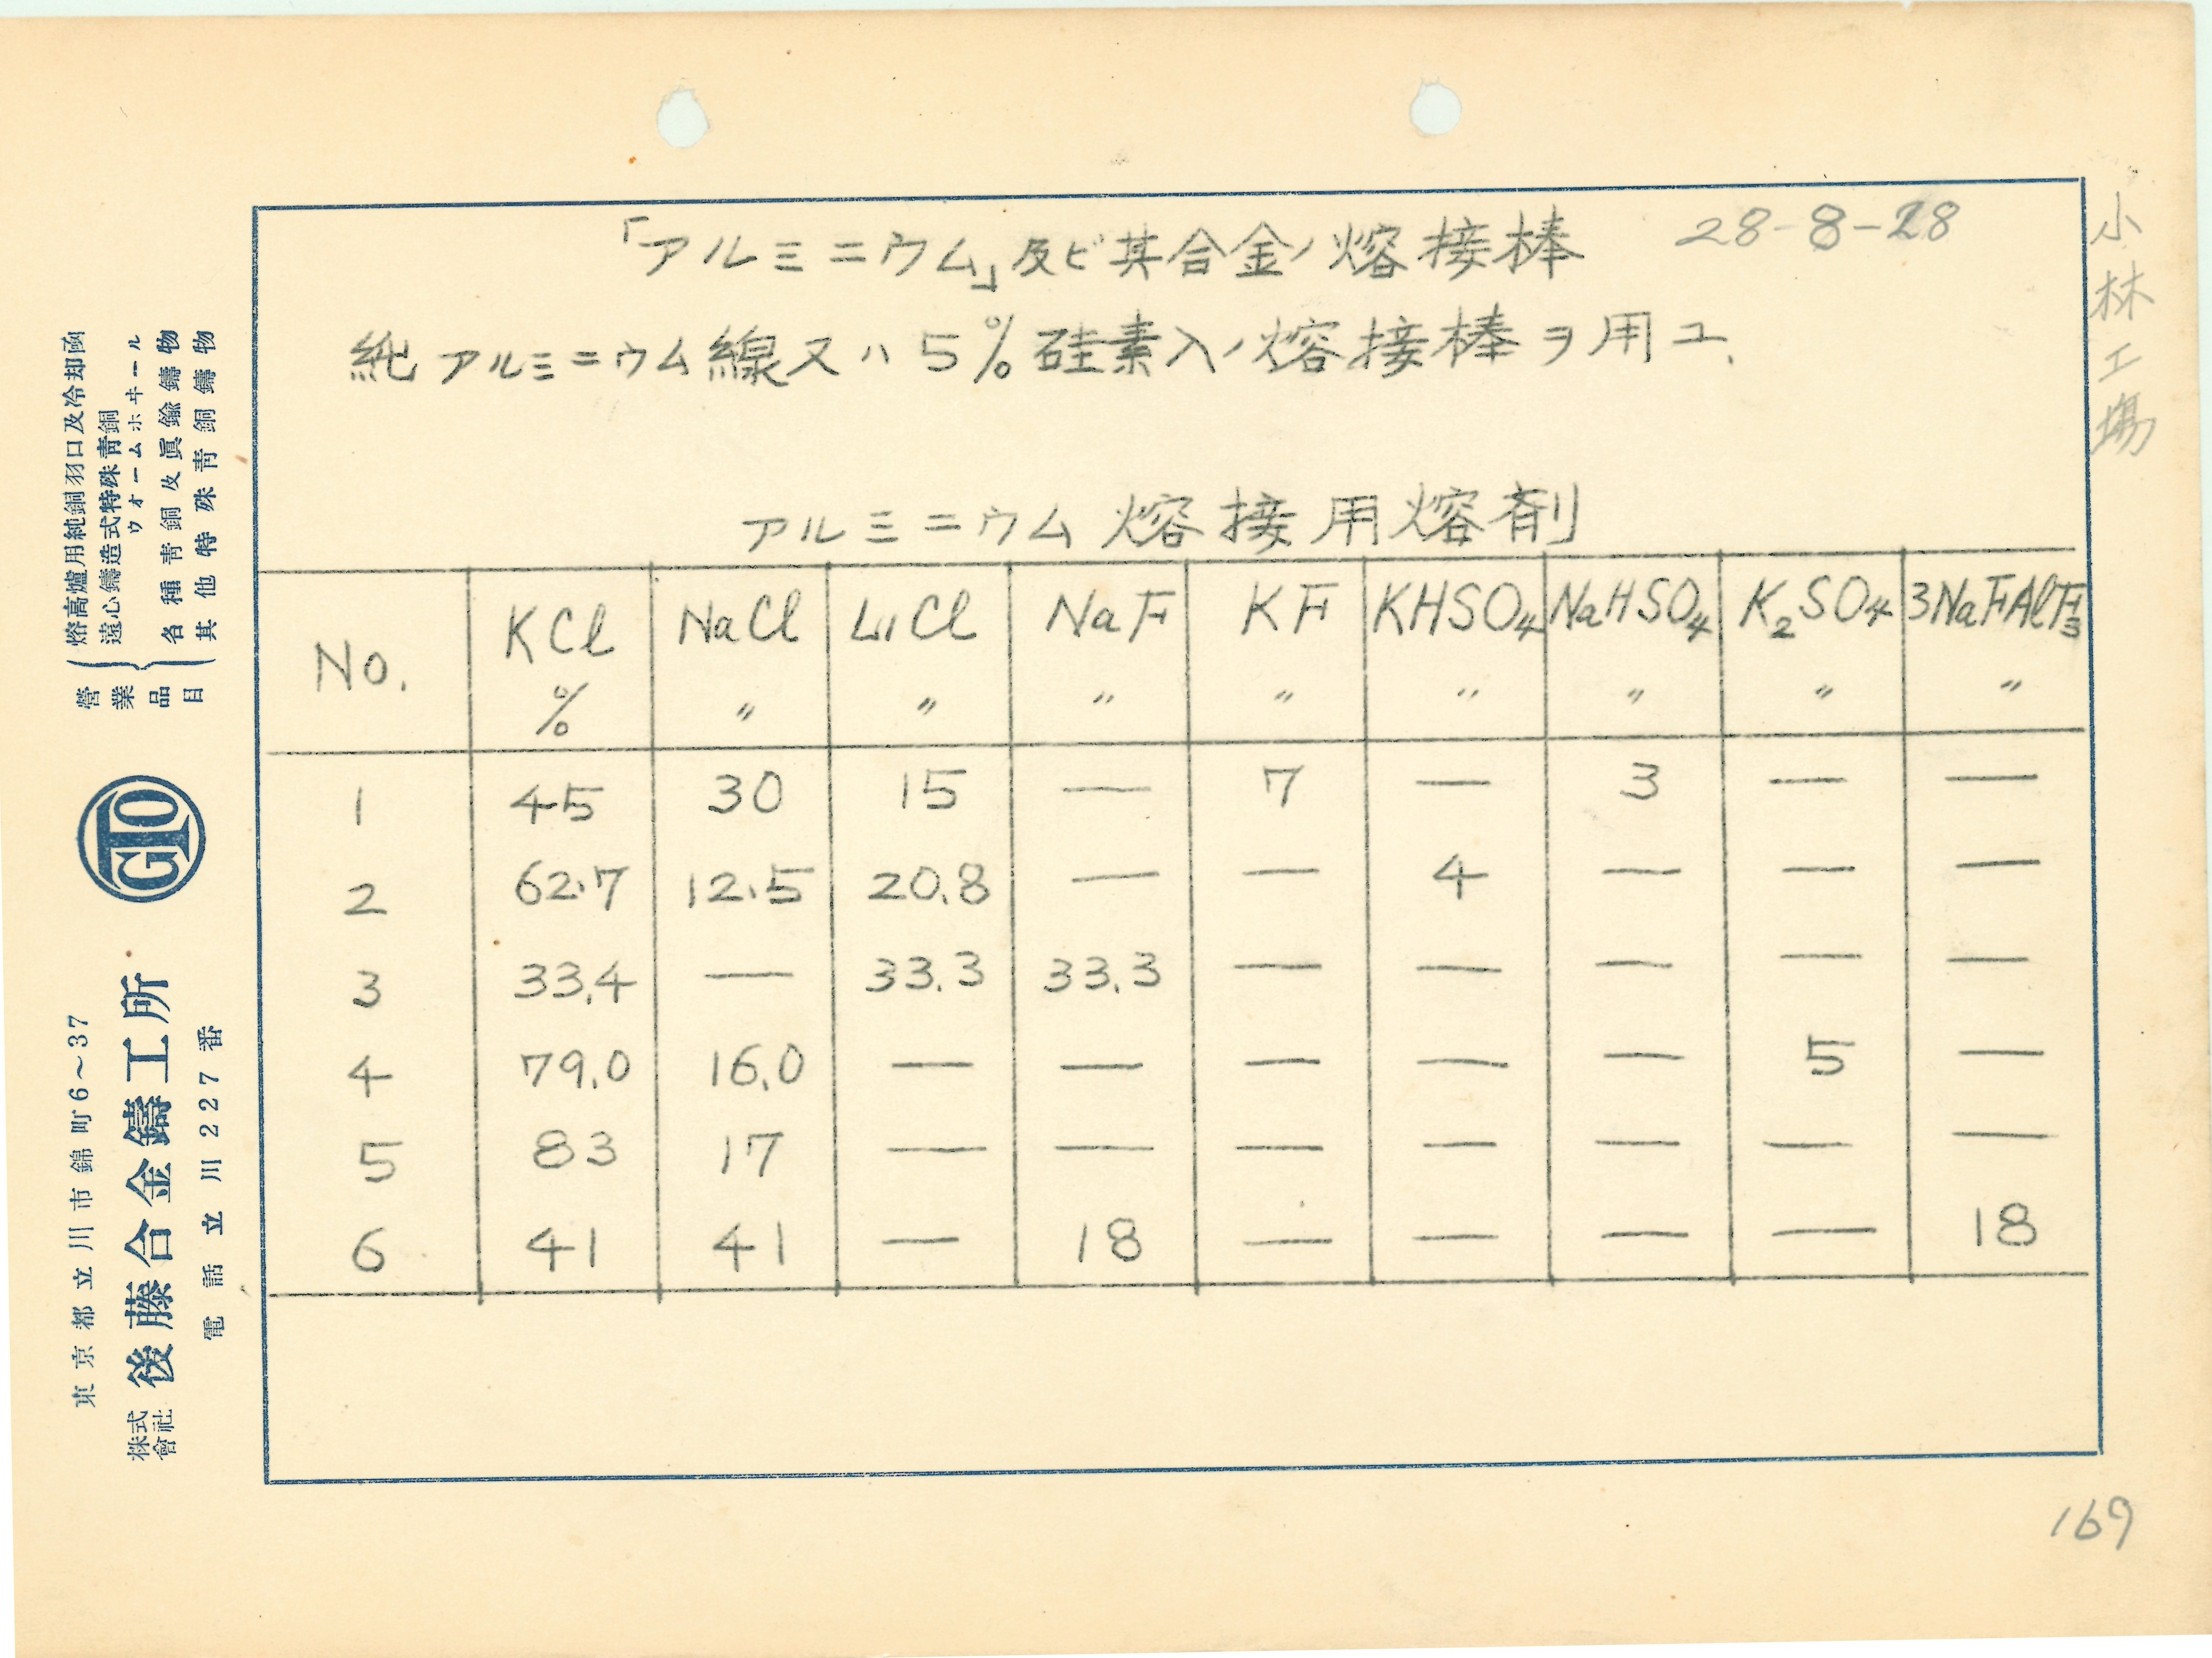 「アルミニウム」及ビ其合金ノ熔接棒 28-8-28
純アルミニウム線又ハ5%硅素入ノ熔接棒ヲ用ユ、
小林工場
アルミニウム熔接用熔剤
No. KCl NaCl LiCl NaF KF KHSO₄ NaHSO₄ K₂SO₄ 3NaFAlF₃
% 〃 〃 〃 〃 〃 〃 〃 〃
1 45 30 15 — 7 — 3 — —
2 62.7 12.5 20.8 — — 4 — — —
3 33.4 — 33.3 33.3 — — — — —
4 79.0 16.0 — — — — — 5 —
5 83 17 — — — — — — —
6 41 41 — 18 — — — — 18
169
營業品目
熔高爐用純銅羽口及冷却函
遠心鑄造式特殊青銅
ウオームホヰール
各種青銅及眞鍮鑄物
其他特殊青銅鑄物
GTO
東京都立川市錦町6～37
株式會社 後藤合金鑄工所
電話立川227番